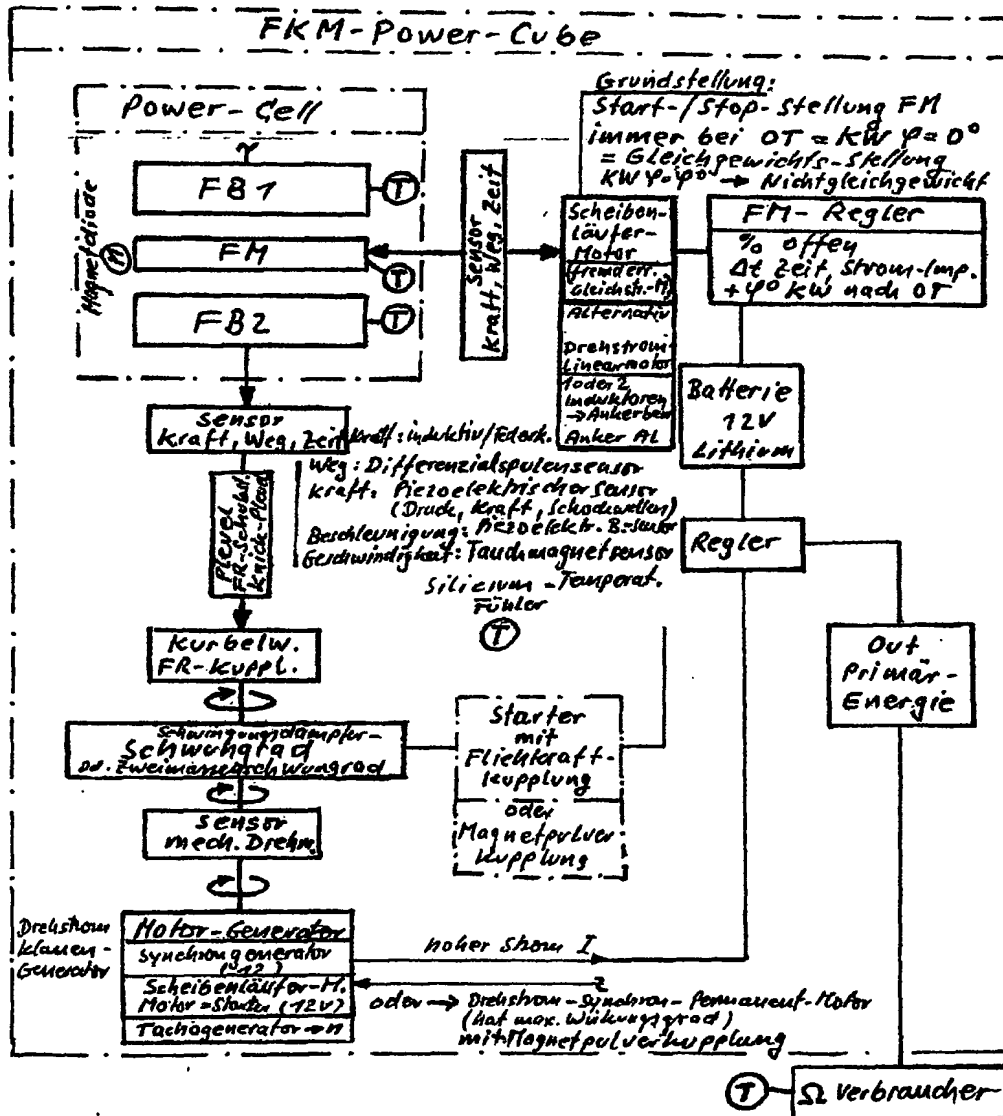 FKM-Power-Cube
Grundstellung:
Start-/Stop-Stellung FM
immer bei OT = KW φ = 0°
= Gleichgewichts-Stellung
KW φ=φ° → Nichtgleichgewicht
Power-Cell
FB1
T
Magnetdiode
M
FM
T
FB2
T
Sensor
Kraft, Weg, Zeit
Scheiben-
läufer-
Motor
fremderr.
Gleichstr.-M.
Alternativ
Drehstrom-
Linearmotor
1 oder 2
Induktoren
Anker AL
FM-Regler
% offen
Δt Zeit, Strom-Imp.
+φ° KW nach OT
Batterie
12V
Lithium
Regler
Out
Primär-
Energie
Sensor
Kraft, Weg, Zeit
Kraft: induktiv/Federk.
Weg: Differenzialspulensensor
Kraft: Piezoelektrischer Sensor
(Druck, Kraft, Schockwellen)
Beschleunigung: Piezoelektr. B-Sensor
Geschwindigkeit: Tauchmagnetsensor
Silicium-Temperat.
Fühler
T
Pleuel
Knick-Pleuel
Kurbelw.
FR-Kuppl.
Schwingungsdämpfer-
Schwungrad
od. Zweimassenschwungrad
Starter
mit
Fliehkraft-
kupplung
oder
Magnetpulver
Kupplung
Sensor
mech. Drehm.
Drehstrom
Klauen-
Generator
Motor-Generator
Synchrongenerator
(12)
Scheibenläufer-M.
Motor = Starter (12V)
Tachogenerator → n
hoher Strom I
2
oder → Drehstrom-Synchron-Permanent-Motor
(hat max. Wirkungsgrad)
mit Magnetpulverkupplung
T
Ω Verbraucher